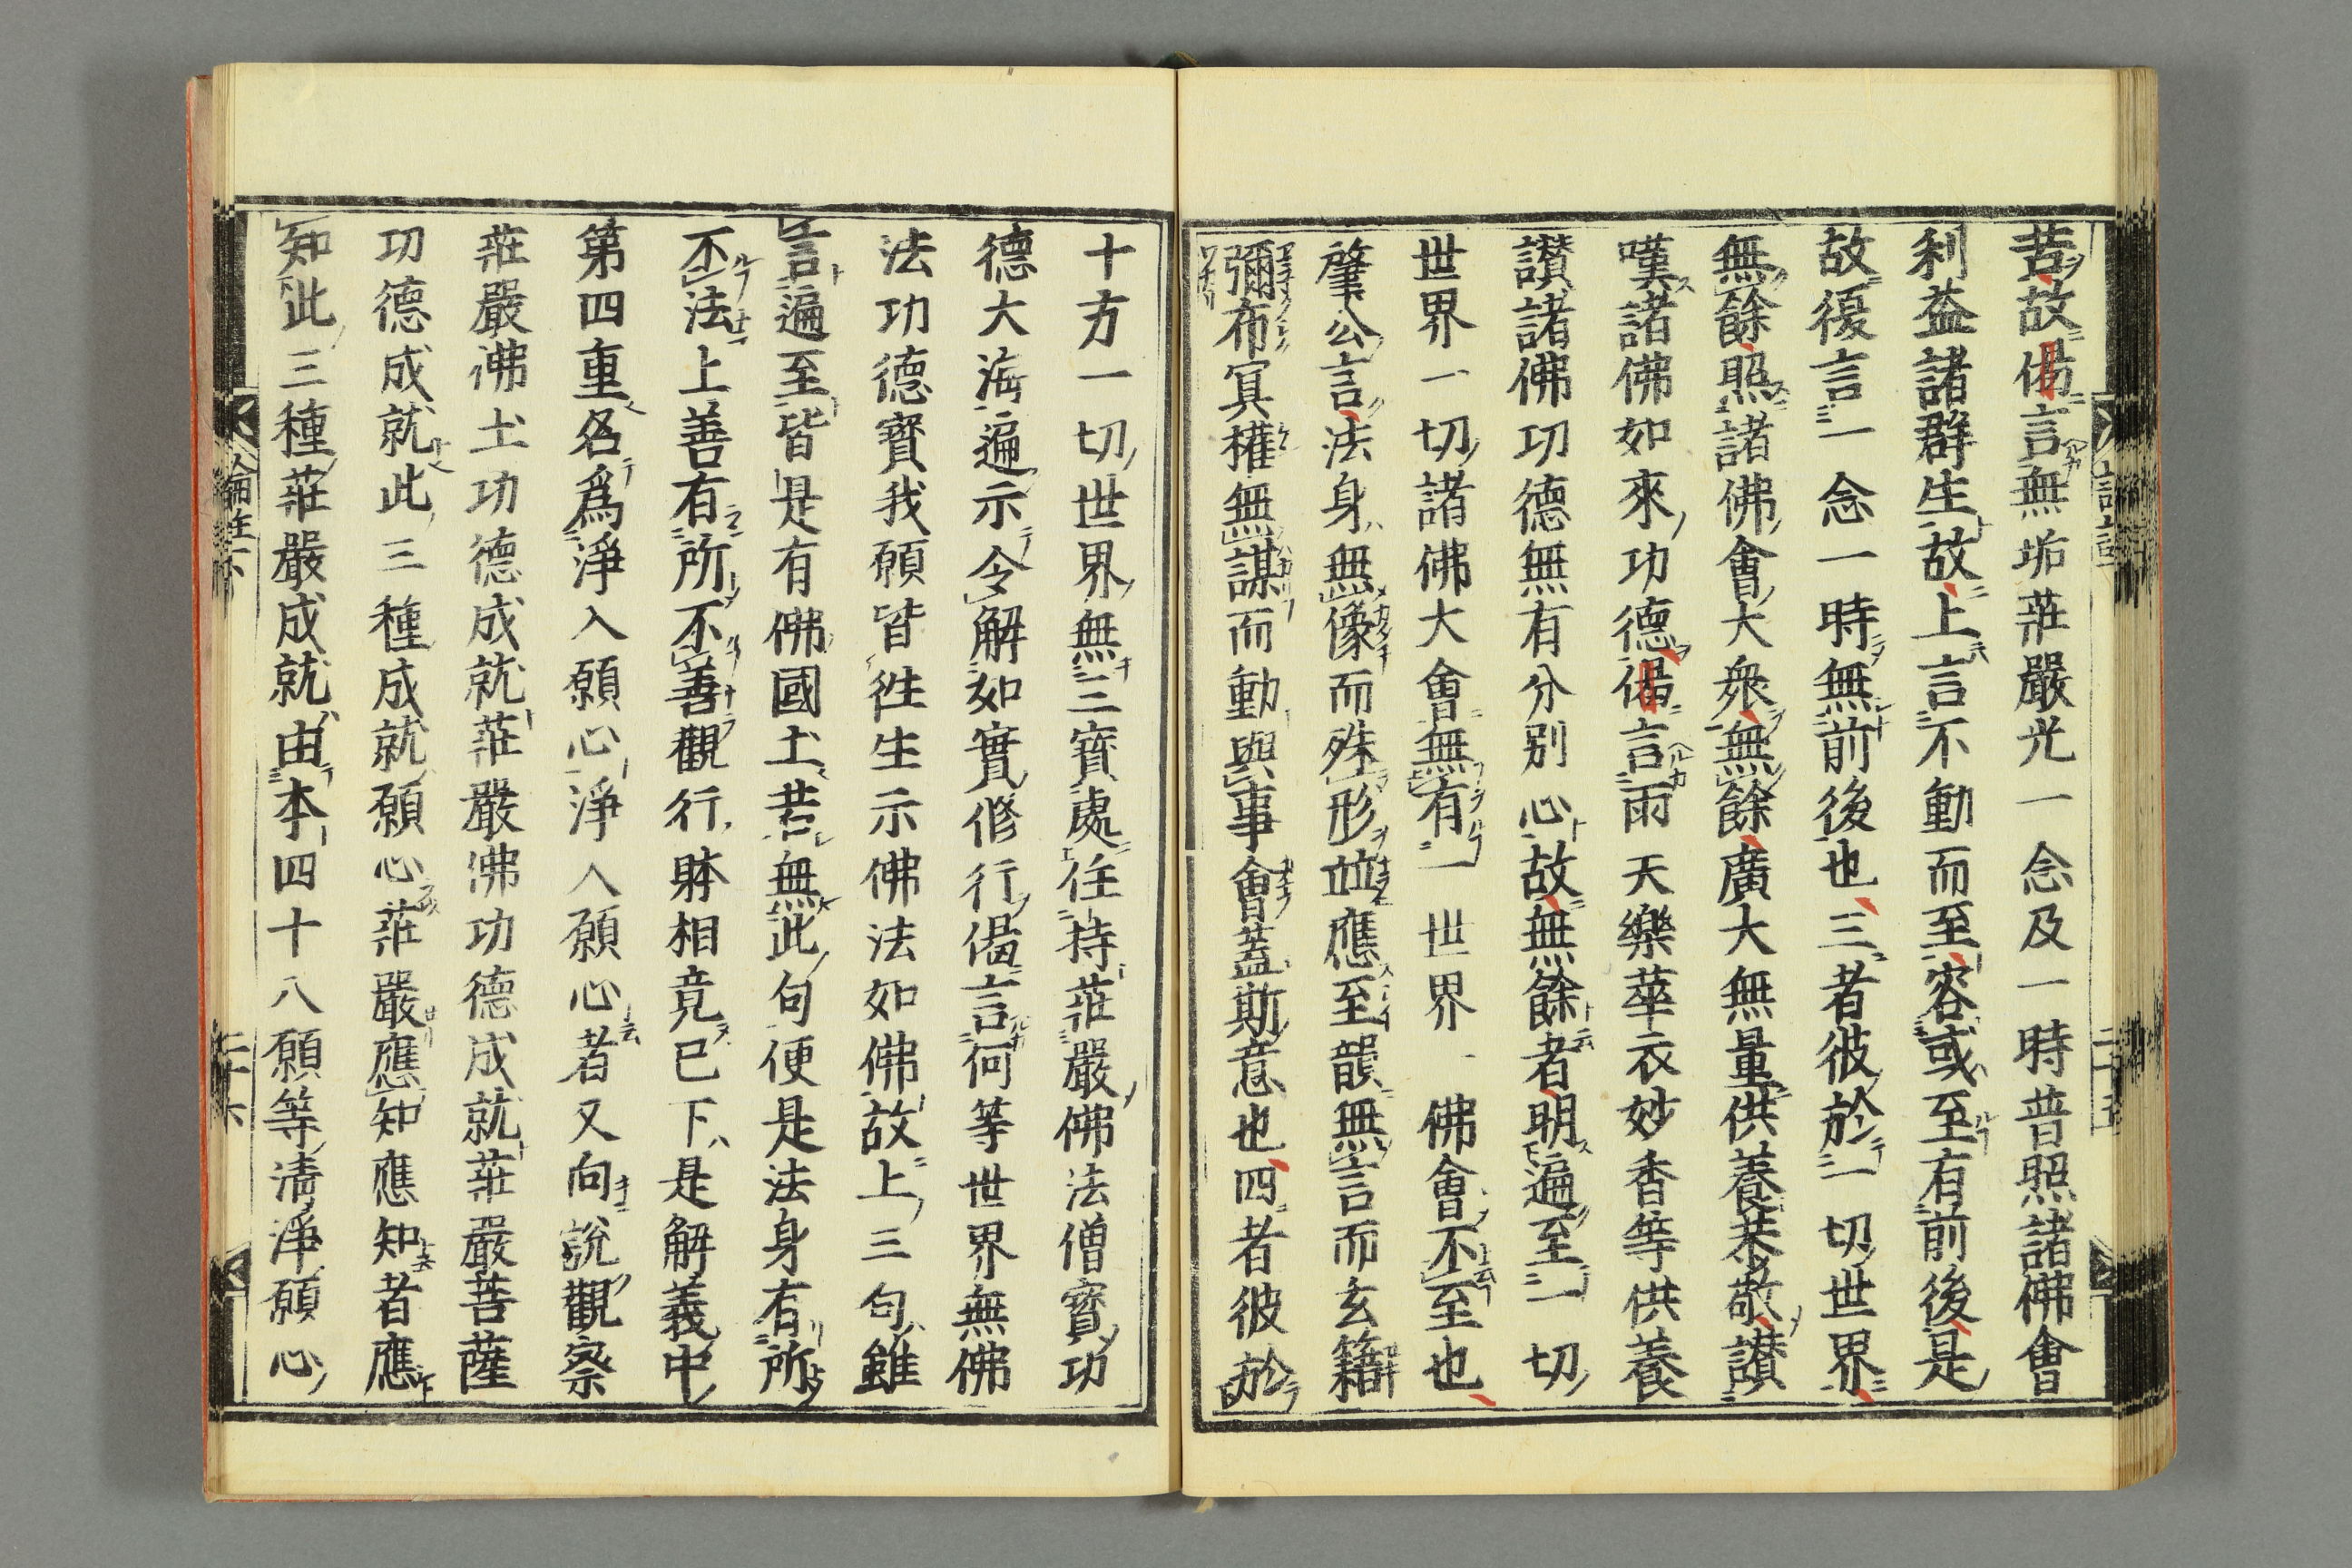 苦故偈言無垢莊嚴光一念及一時普照諸佛會
利益諸群生故上言不動而至容或至有前後是
故復言一念一時無前後也三者彼於一切世界
無餘照諸佛會大衆無餘廣大無量供養恭敬讃
嘆諸佛如來功德偈言雨天樂華衣妙香等供養
讃諸佛功德無有分别心故無餘者明遍至一切
世界一切諸佛大會無有一世界一佛會不至也
肇公言法身無像而殊形竝應至韻無言而玄籍
彌布冥權無謀而動與事會蓋斯意也四者彼於
十方一切世界無三寶處住持莊嚴佛法僧寶功
德大海遍示令解如實修行偈言何等世界無佛
法功德寶我願皆徃生示佛法如佛故上三句雖
言遍至皆是有佛國土若無此句便是法身有所
不法上善有所不善觀行體相竟已下是解義中
第四重名爲淨入願心淨入願心者又向說觀察
莊嚴佛土功德成就莊嚴佛功德成就莊嚴菩薩
功德成就此三種成就願心莊嚴應知應知者應
知此三種莊嚴成就由本四十八願等清淨願心
論註下
二十六